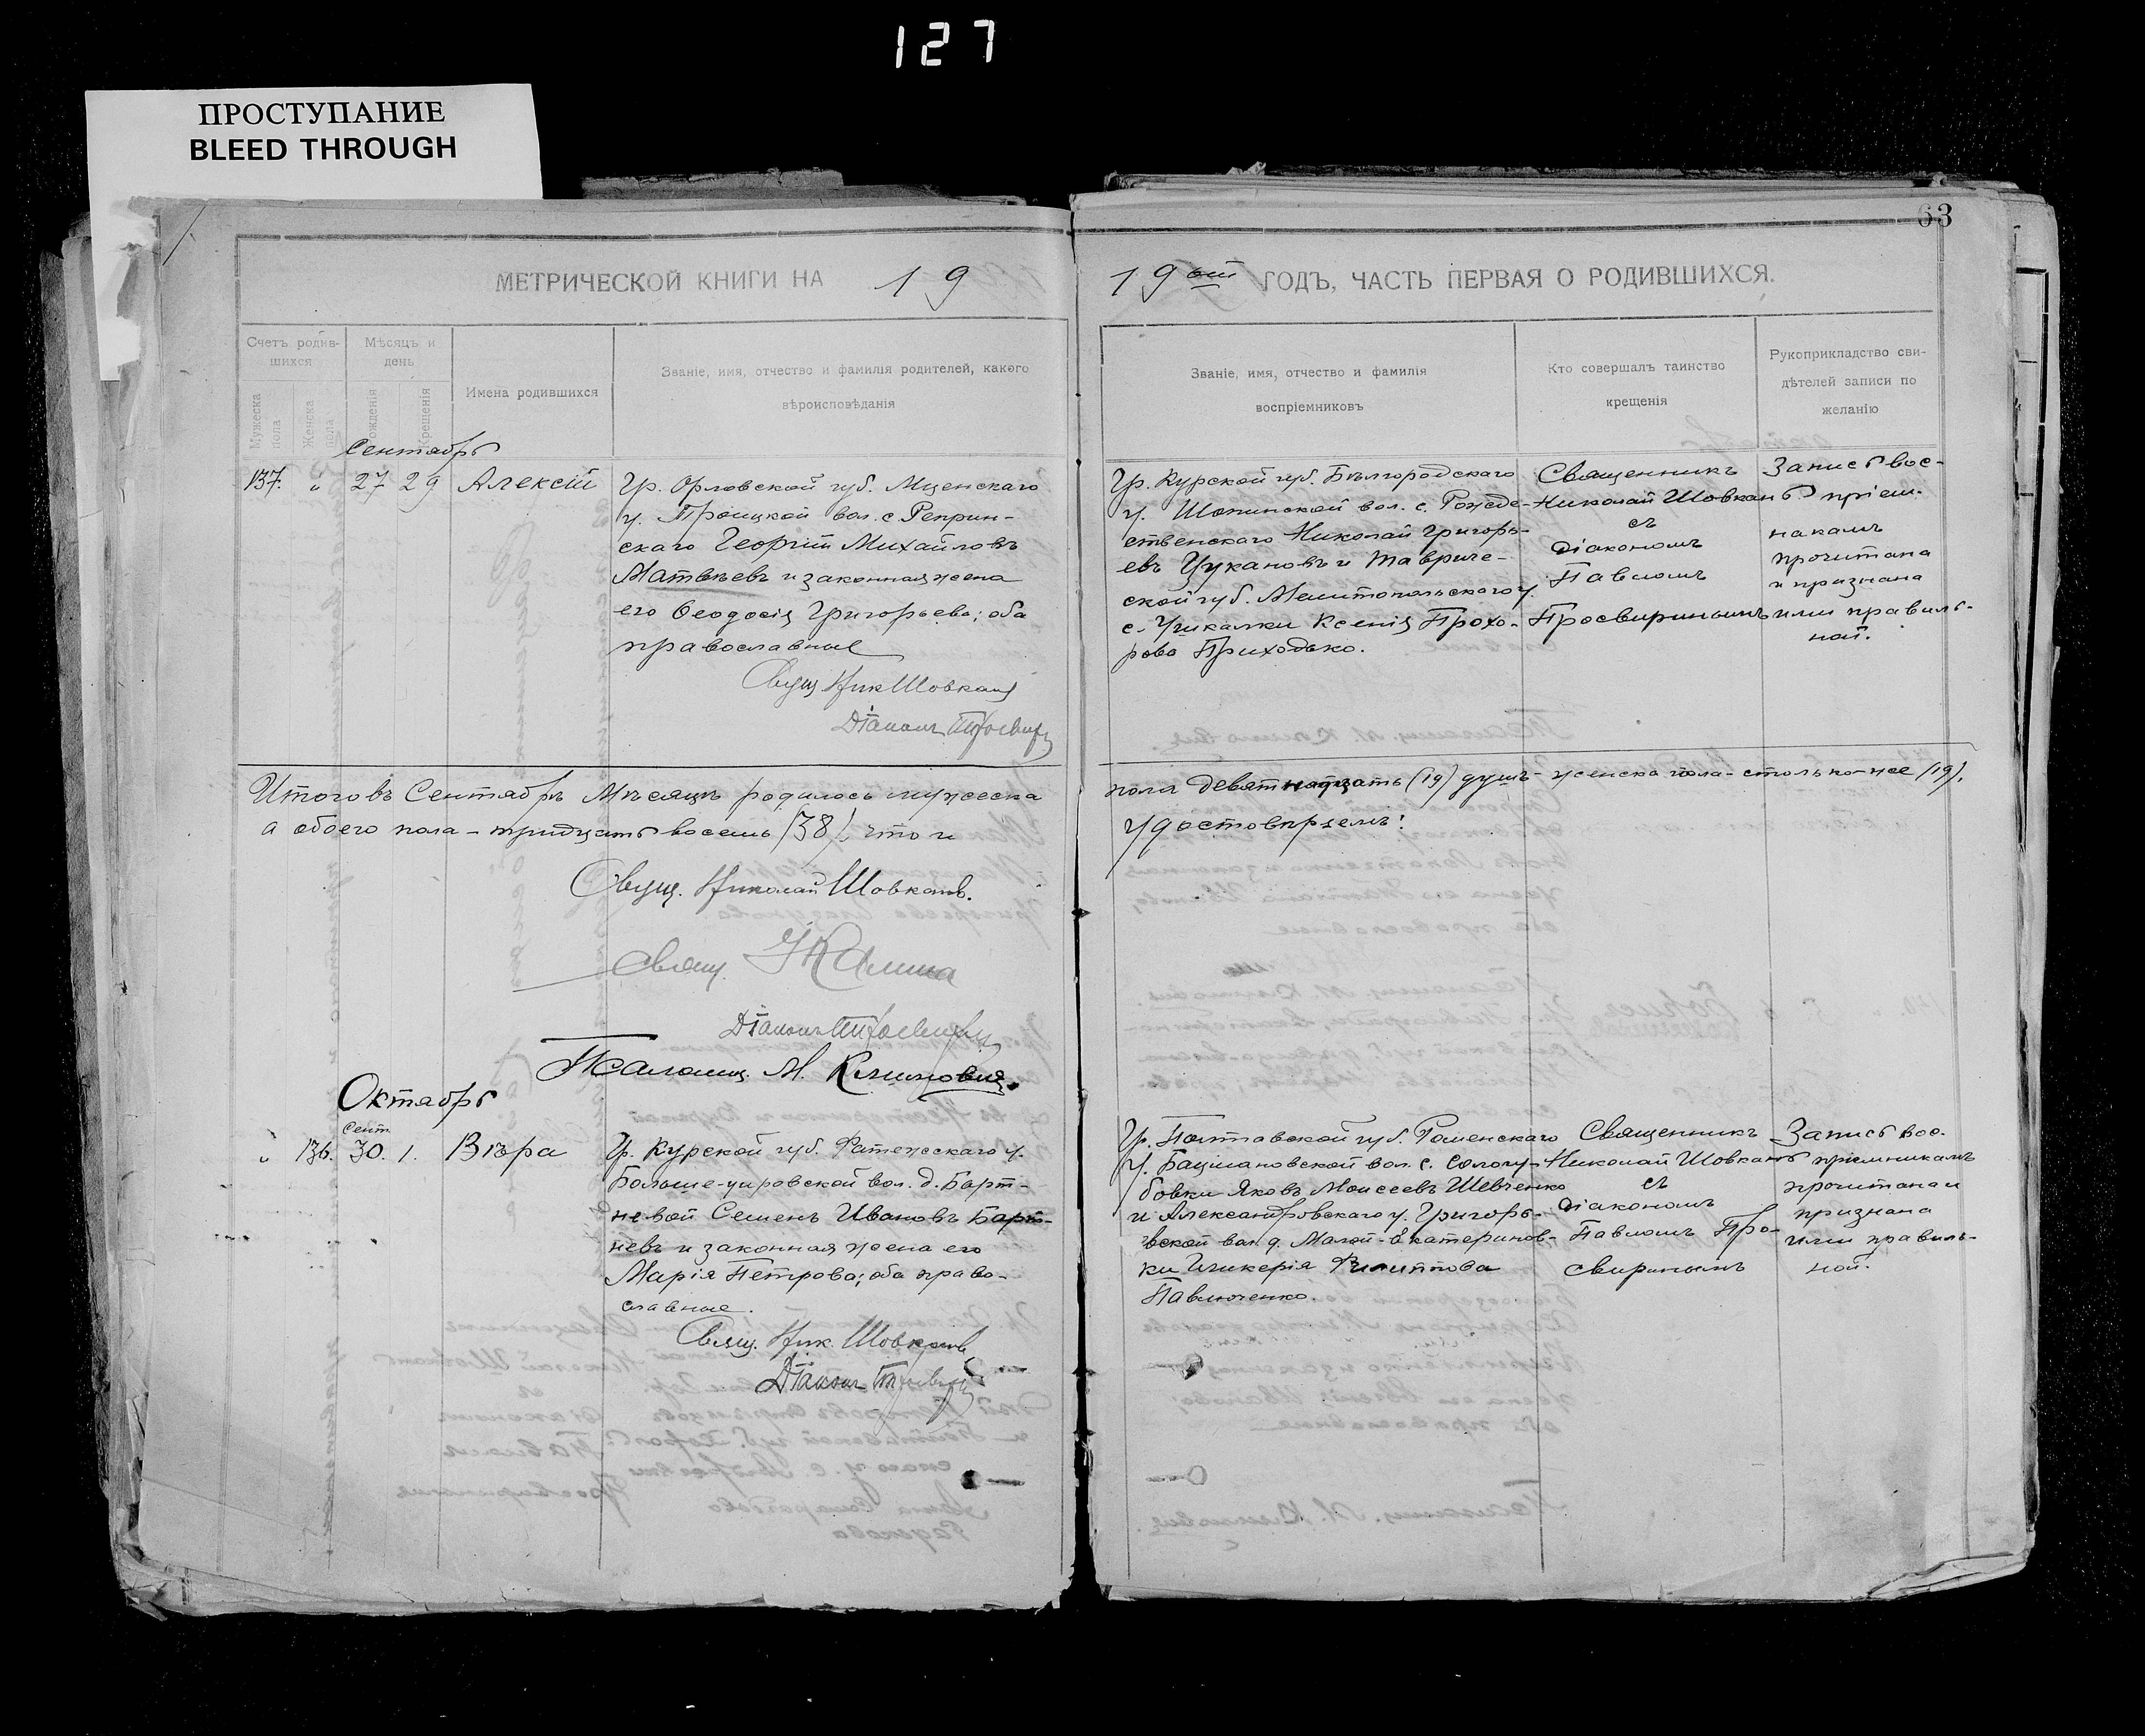 127
ПРОСТУПАНИЕ
BLEED THROUGH
63
МЕТРИЧЕСКОЙ КНИГИ НА 19
19ый ГОДЪ, ЧАСТЬ ПЕРВАЯ О РОДИВШИХСЯ.
Счетъ родив-
шихся
Мужеска пола
Женска пола
Мѣсяцъ и
день
рожденія
крещенія
Имена родившихся
Званіе, имя, отчество и фамилія родителей, какого
вѣроисповѣданія
Званіе, имя, отчество и фамилія
воспріемниковъ
Кто совершалъ таинство
крещенія
Рукоприкладство сви-
дѣтелей записи по
желанію
Сентябрь
137. " 27 29 Алексій
Гр. Орловской губ. Мценскаго
у. Троицкой вол. с. Реприн-
скаго Георгій Михайловъ
Матвѣевъ и законная жена
его Ѳеодосія Григорьева; оба
православные
Свящ Ник Шовкань
Діаконъ
Гр. Курской губ. Бѣлгородскаго
у. Шопинской вол. с. Рожде-
ственскаго Николай Григорь-
евъ Цукановъ и Тавриче-
ской губ. Мелитопольскаго у.
с. Чикалки Ксенія Прохо-
рова Приходько.
Священникъ
Николай Шовкань
съ
діакономъ
Павломъ
Просвиринымъ
Запись вос-
пріем-
никамъ
прочитана
и признана
ими правиль-
ной.
Итого въ Сентябрѣ Мѣсяцѣ родилось мужеска
пола девятнадцать (19) душъ - женска пола - столько-же (19),
а обоего пола - тридцать восемь (38), что и
удостовѣряемъ:
Свящ. Николай Шовкань.
Свящ.
Діаконъ
Псаломщ. М. Климовиц.
Октябрь
Сент.
" 136. 30. 1. Вѣра
Гр. Курской губ. Фатежскаго у.
Больше- вол. д. Барт-
невой Семенъ Ивановъ Барт-
невъ и законная жена его
Марія Петрова; оба право-
славные.
Свящ. Ник. Шовкань
Діаконъ
Гр. Полтавской губ. Роменскаго
у. Бацмановской вол. с. Сологу-
бовки Яковъ Моисеевъ Шевченко
и Александровскаго у. Григорь-
вской вол. д. Малой-Екатеринов-
ки Гликерія Филиппова
Павлюченко.
Священникъ
Николай Шовкань
съ
діакономъ
Павломъ Про-
свиринымъ
Запись вос-
пріемникамъ
прочитана и
признана
ими правиль-
ной.